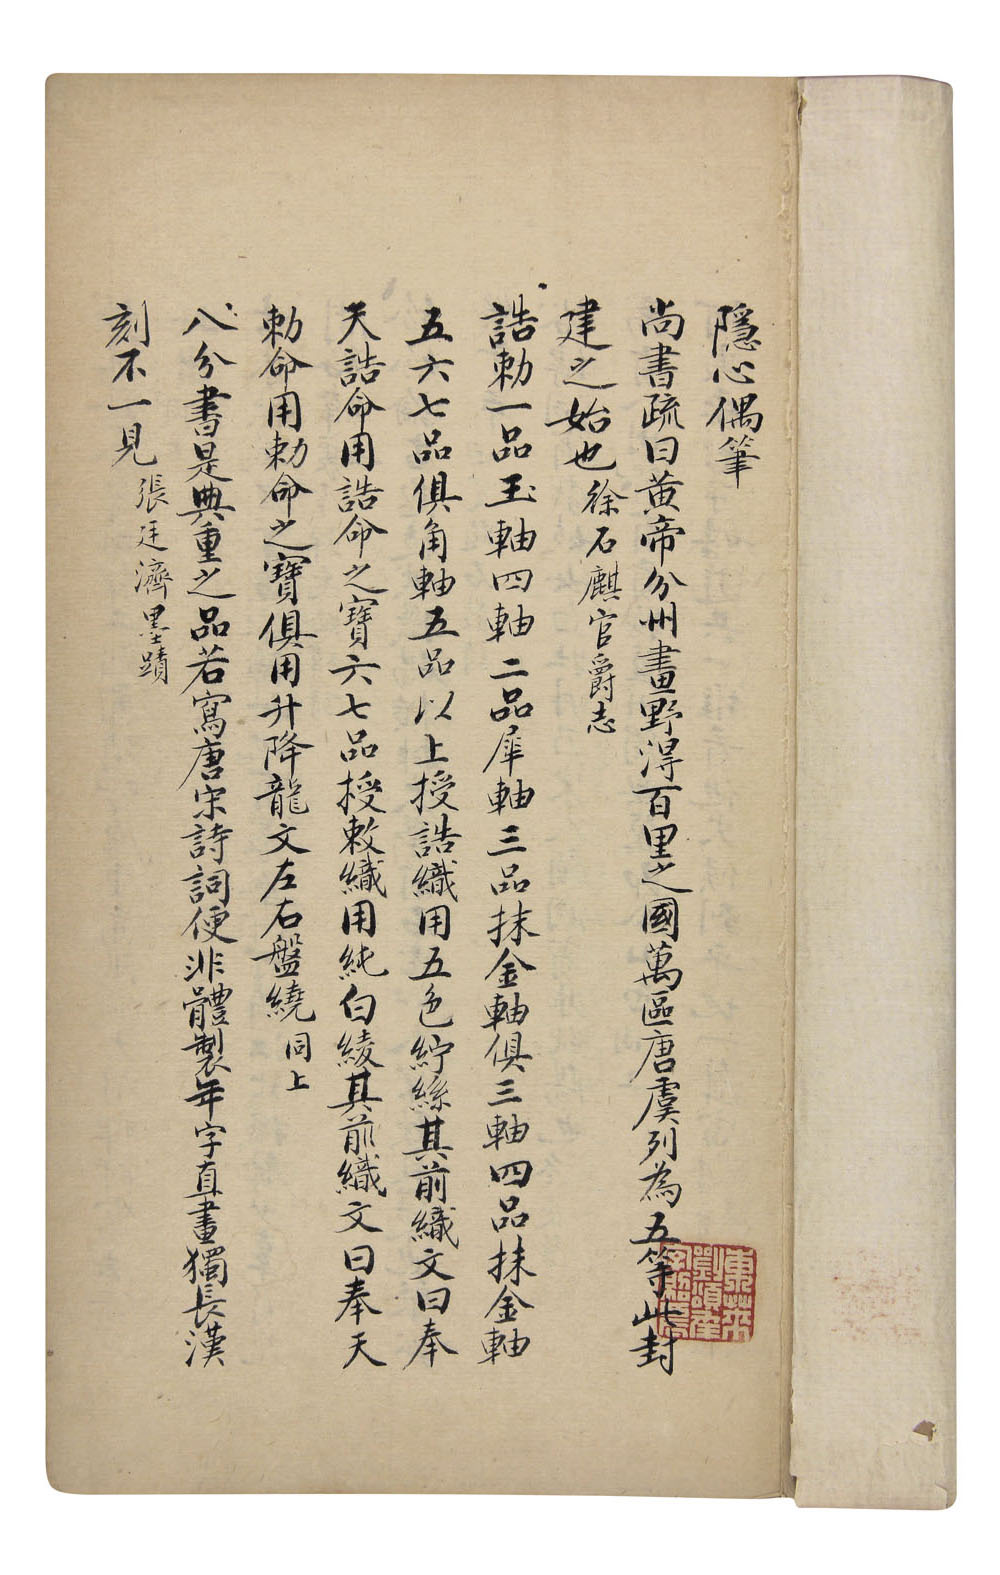 隱心偶筆
尚書疏曰黃帝分州畫野得百里之國萬區唐虞列為五等此封
建之始也徐石麒官爵志
誥勅一品玉軸四軸二品犀軸三品抹金軸俱三軸四品抹金軸
五六七品俱角軸五品以上授誥織用五色紵絲其前織文曰奉
天誥命用誥命之寶六七品授敕織用純白綾其前織文曰奉天
勅命用勅命之寶俱用升降龍文左右盤繞同上
八分書是典重之品若寫唐宋詩詞便非體製年字直畫獨長漢
刻不一見張廷濟墨蹟
東萊
劉頌年